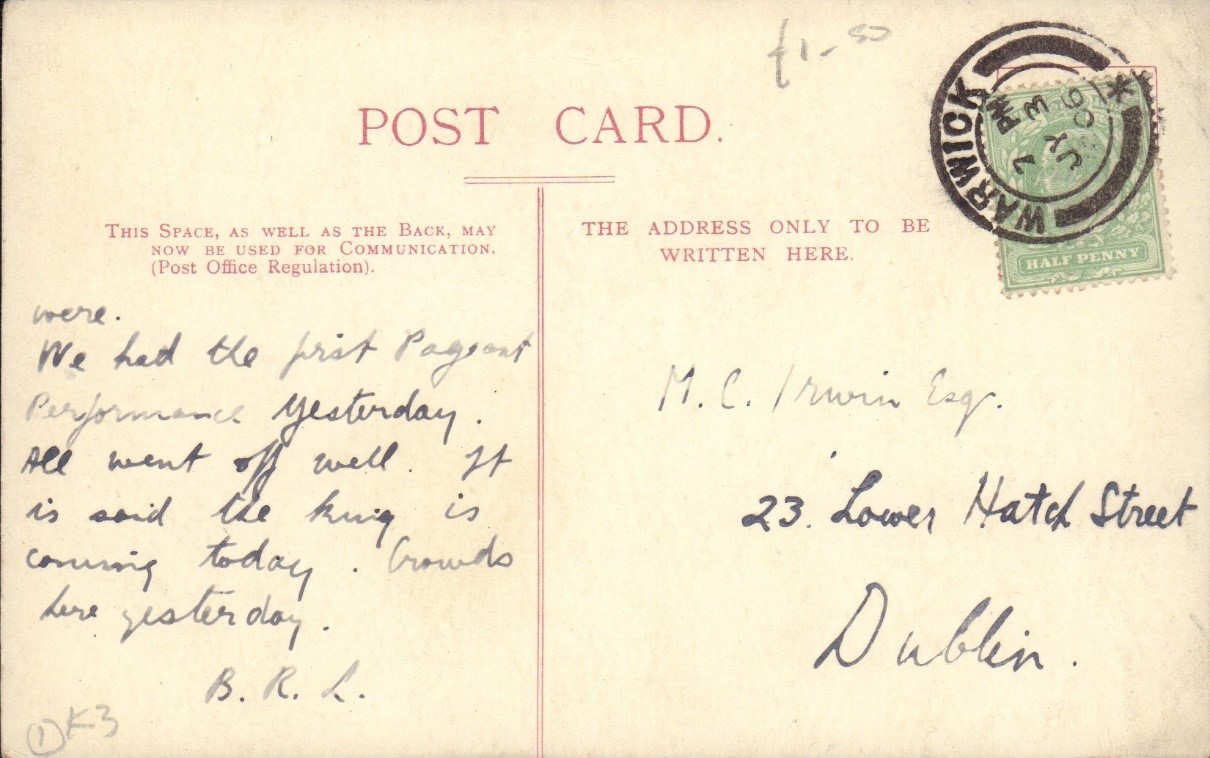 £1-50
POST CARD.
WARWICK
7 PM
JY 3
06
HALF PENNY
THIS SPACE, AS WELL AS THE BACK, MAY
NOW BE USED FOR COMMUNICATION.
(Post Office Regulation).
THE ADDRESS ONLY TO BE
WRITTEN HERE.
were.
We had the first Pageant
Performance Yesterday.
All went off well. It
is said the king is
coming today. Crowds
here yesterday.
B. R. L.
M. C. Irwin Esq.
23. Lower Hatch Street
Dublin.
1 K3